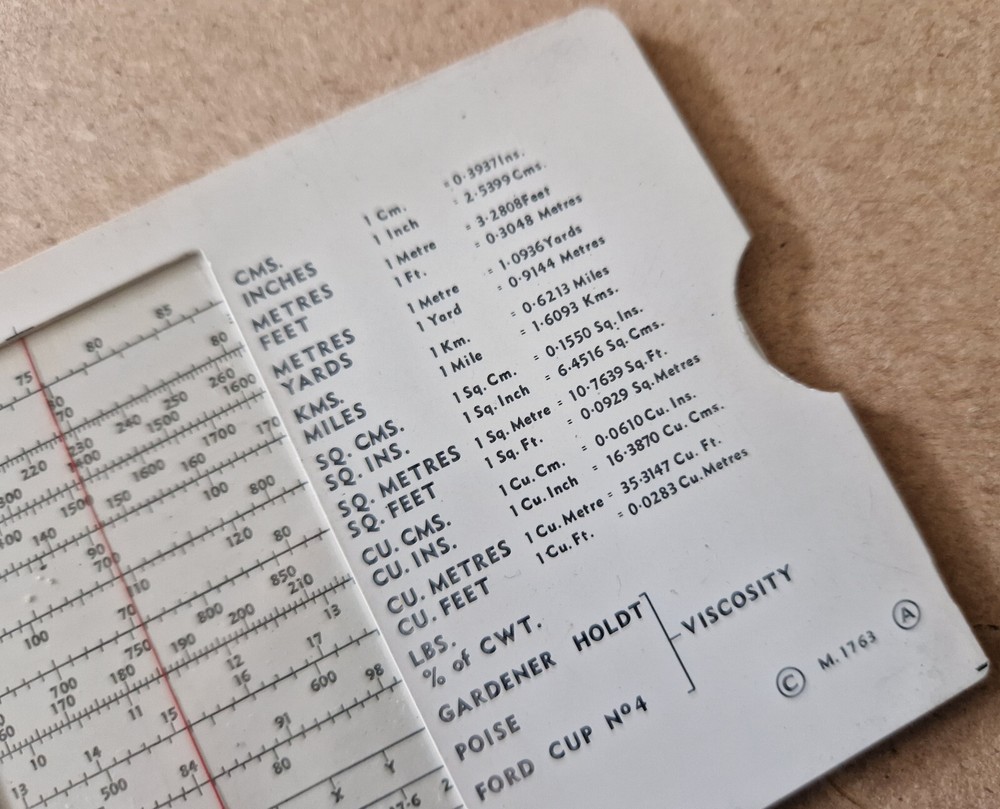 CMS. 1 Cm. = 0·3937 Ins.
INCHES 1 Inch = 2·5399 Cms.
METRES 1 Metre = 3·2808 Feet
FEET 1 Ft. = 0·3048 Metres
METRES 1 Metre = 1·0936 Yards
YARDS 1 Yard = 0·9144 Metres
KMS. 1 Km. = 0·6213 Miles
MILES 1 Mile = 1·6093 Kms.
SQ. CMS. 1 Sq. Cm. = 0·1550 Sq. Ins.
SQ. INS. 1 Sq. Inch = 6·4516 Sq. Cms.
SQ. METRES 1 Sq. Metre = 10·7639 Sq. Ft.
SQ. FEET 1 Sq. Ft. = 0·0929 Sq. Metres
CU. CMS. 1 Cu. Cm. = 0·0610 Cu. Ins.
CU. INS. 1 Cu. Inch = 16·3870 Cu. Cms.
CU. METRES 1 Cu. Metre = 35·3147 Cu. Ft.
CU. FEET 1 Cu. Ft. = 0·0283 Cu. Metres
LBS.
% of CWT.
GARDENER HOLDT
POISE
FORD CUP Nº4
VISCOSITY
© M.1763 A
75 80 85
70 80
220 230 240 250 260
1500 1600
150 160 170
1600 1700
140 150
90 100
700 800
110 120
100
70 80
750 800 850
700
180 190 200 210
170
11 12 13
15 16 17
14
10
500 600
13
84
91 98
80
X Y